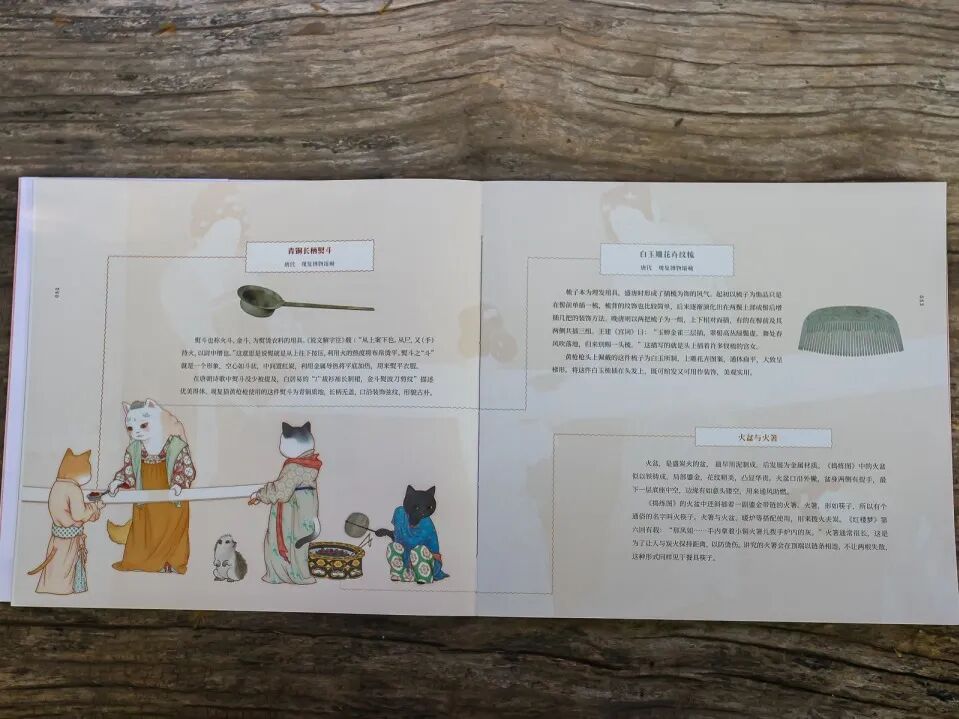 青铜长柄熨斗
唐代 观复博物馆藏
熨斗也称火斗、金斗，为熨烫衣料的用具。《说文解字注》载：“从上案下也。从𡰥，又（手）
持火，以尉申缯也。”这意思是说熨就是从上往下按压，利用火的热度将布帛烫平。熨斗之“斗”
就是一个形象，空心如斗状，中间置红炭，利用金属导热将平底加热，用来熨平衣服。
在唐朝诗歌中熨斗没少被提及，白居易的“广裁衫袖长制裙，金斗熨波刀剪纹”描述
优美得体。观复猫黄枪枪使用的这件熨斗为青铜质地，长柄无盖，口沿装饰弦纹，形貌古朴。
052
白玉雕花卉纹梳
唐代 观复博物馆藏
梳子本为理发用具，盛唐时形成了插梳为饰的风气。起初以梳子为饰品只是
在髻前单插一梳，梳背的纹饰也比较简单，后来逐渐演化出在两鬓上部或髻后增
插几把的装饰方法。晚唐则以两把梳子为一组，上下相对而插，有的在髻前及其
两侧共插三组。王建《宫词》曰：“玉蝉金雀三层插，翠髻高丛绿鬓虚。舞处春
风吹落地，归来别赐一头梳。”这描写的就是从上插着许多钗梳的宫女。
黄枪枪头上佩戴的这件梳子为白玉所制，上雕花卉图案，通体扁平，大致呈
梯形。将这件白玉梳插在头发上，既可绾发又可用作装饰，美观实用。
053
火盆与火箸
火盆，是盛炭火的盆，最早用泥制成，后发展为金属材质。《捣练图》中的火盆
似以铁铸成，局部鎏金，花纹精美，凸显华贵，火盆口沿外撇，盆身两侧有提手，最
下一层底座中空，边缘有如意头镂空，用来通风助燃。
《捣练图》的火盆中还斜插着一副鎏金带链的火箸。火箸，形如筷子，所以有个
通俗的名字叫火筷子。火箸与火盆、暖炉等搭配使用，用来拨火夹炭。《红楼梦》第
六回有载：“那凤姐……手内拿着小铜火箸儿拨手炉内的灰。”火箸通常很长，这是
为了让人与炭火保持距离，以防烫伤。讲究的火箸会在顶端以链条相连，不让两根失散，
这种形式同样见于餐具筷子。